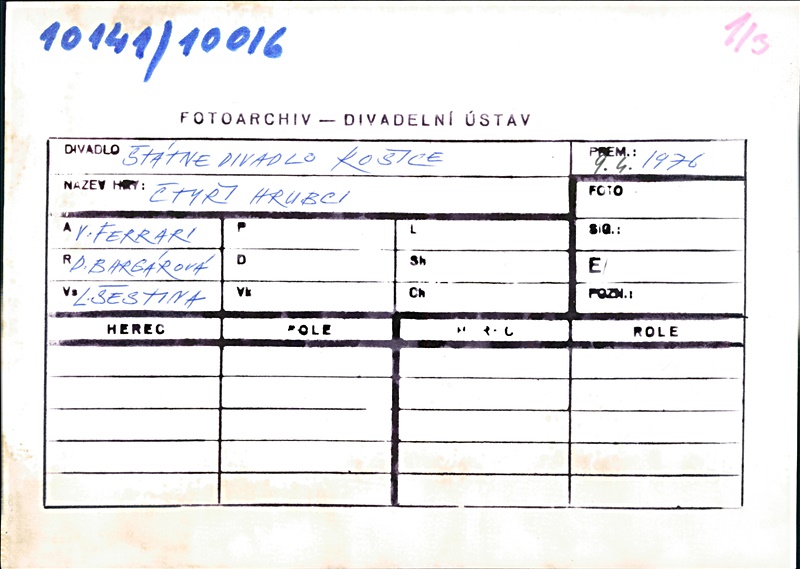 10141/10016
1/3
FOTOARCHIV — DIVADELNÍ ÚSTAV
DIVADLO ŠTÁTNE DIVADLO KOŠICE
PREM.: 9.4. 1976
NÁZEV HRY: ČTYŘI HRUBCI
FOTO
A V. FERRARI P L SIG.:
R D. BARGÁROVÁ D Sh E/
Vs L. ŠESTINA Vk Ch POZN.:
HEREC ROLE HEREC ROLE